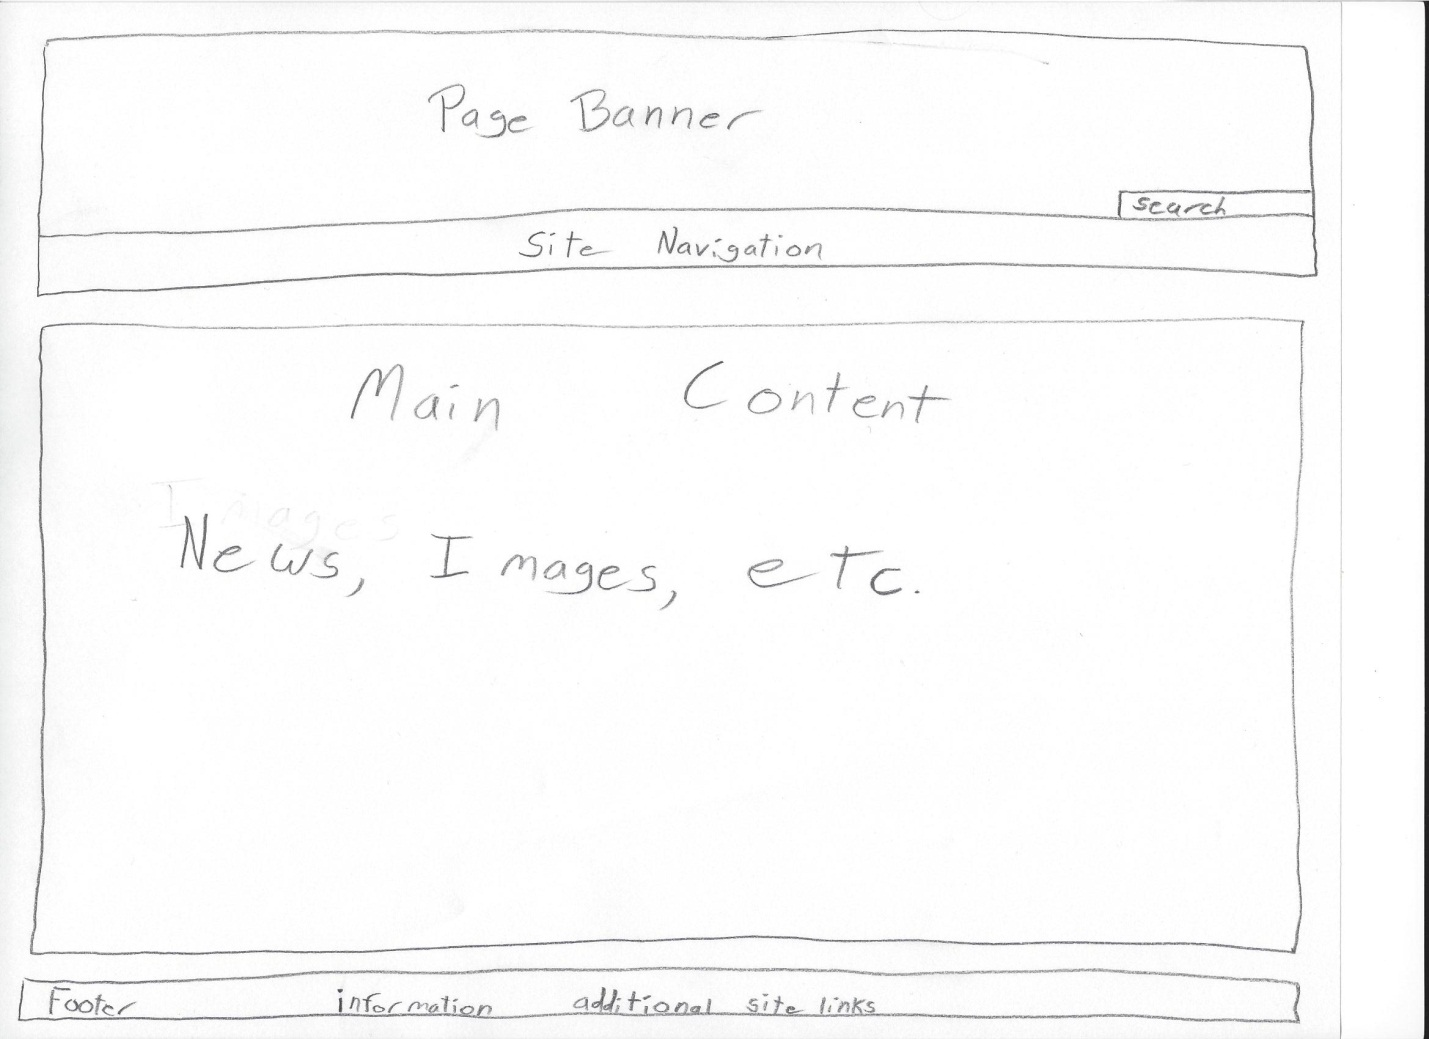 Page Banner
search
Site Navigation
Main Content
Images
News, Images, etc.
Footer information additional site links